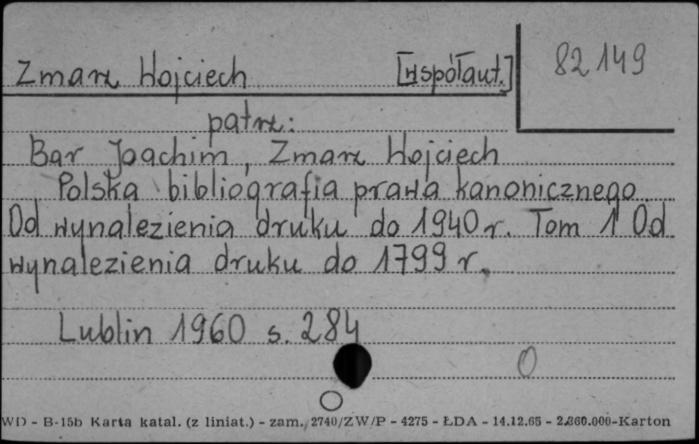 82149
Zmarz Wojciech [współaut.]
patrz:
Bar Joachim, Zmarz Wojciech
Polska bibliografia prawa kanonicznego.
Od wynalezienia druku do 1940 r. Tom 1 Od
wynalezienia druku do 1799 r.
Lublin 1960 s. 284
0
WD - B-15b Karta katal. (z liniat.) - zam. 2740/ZW/P - 4275 - ŁDA - 14.12.65 - 2.860.000-Karton